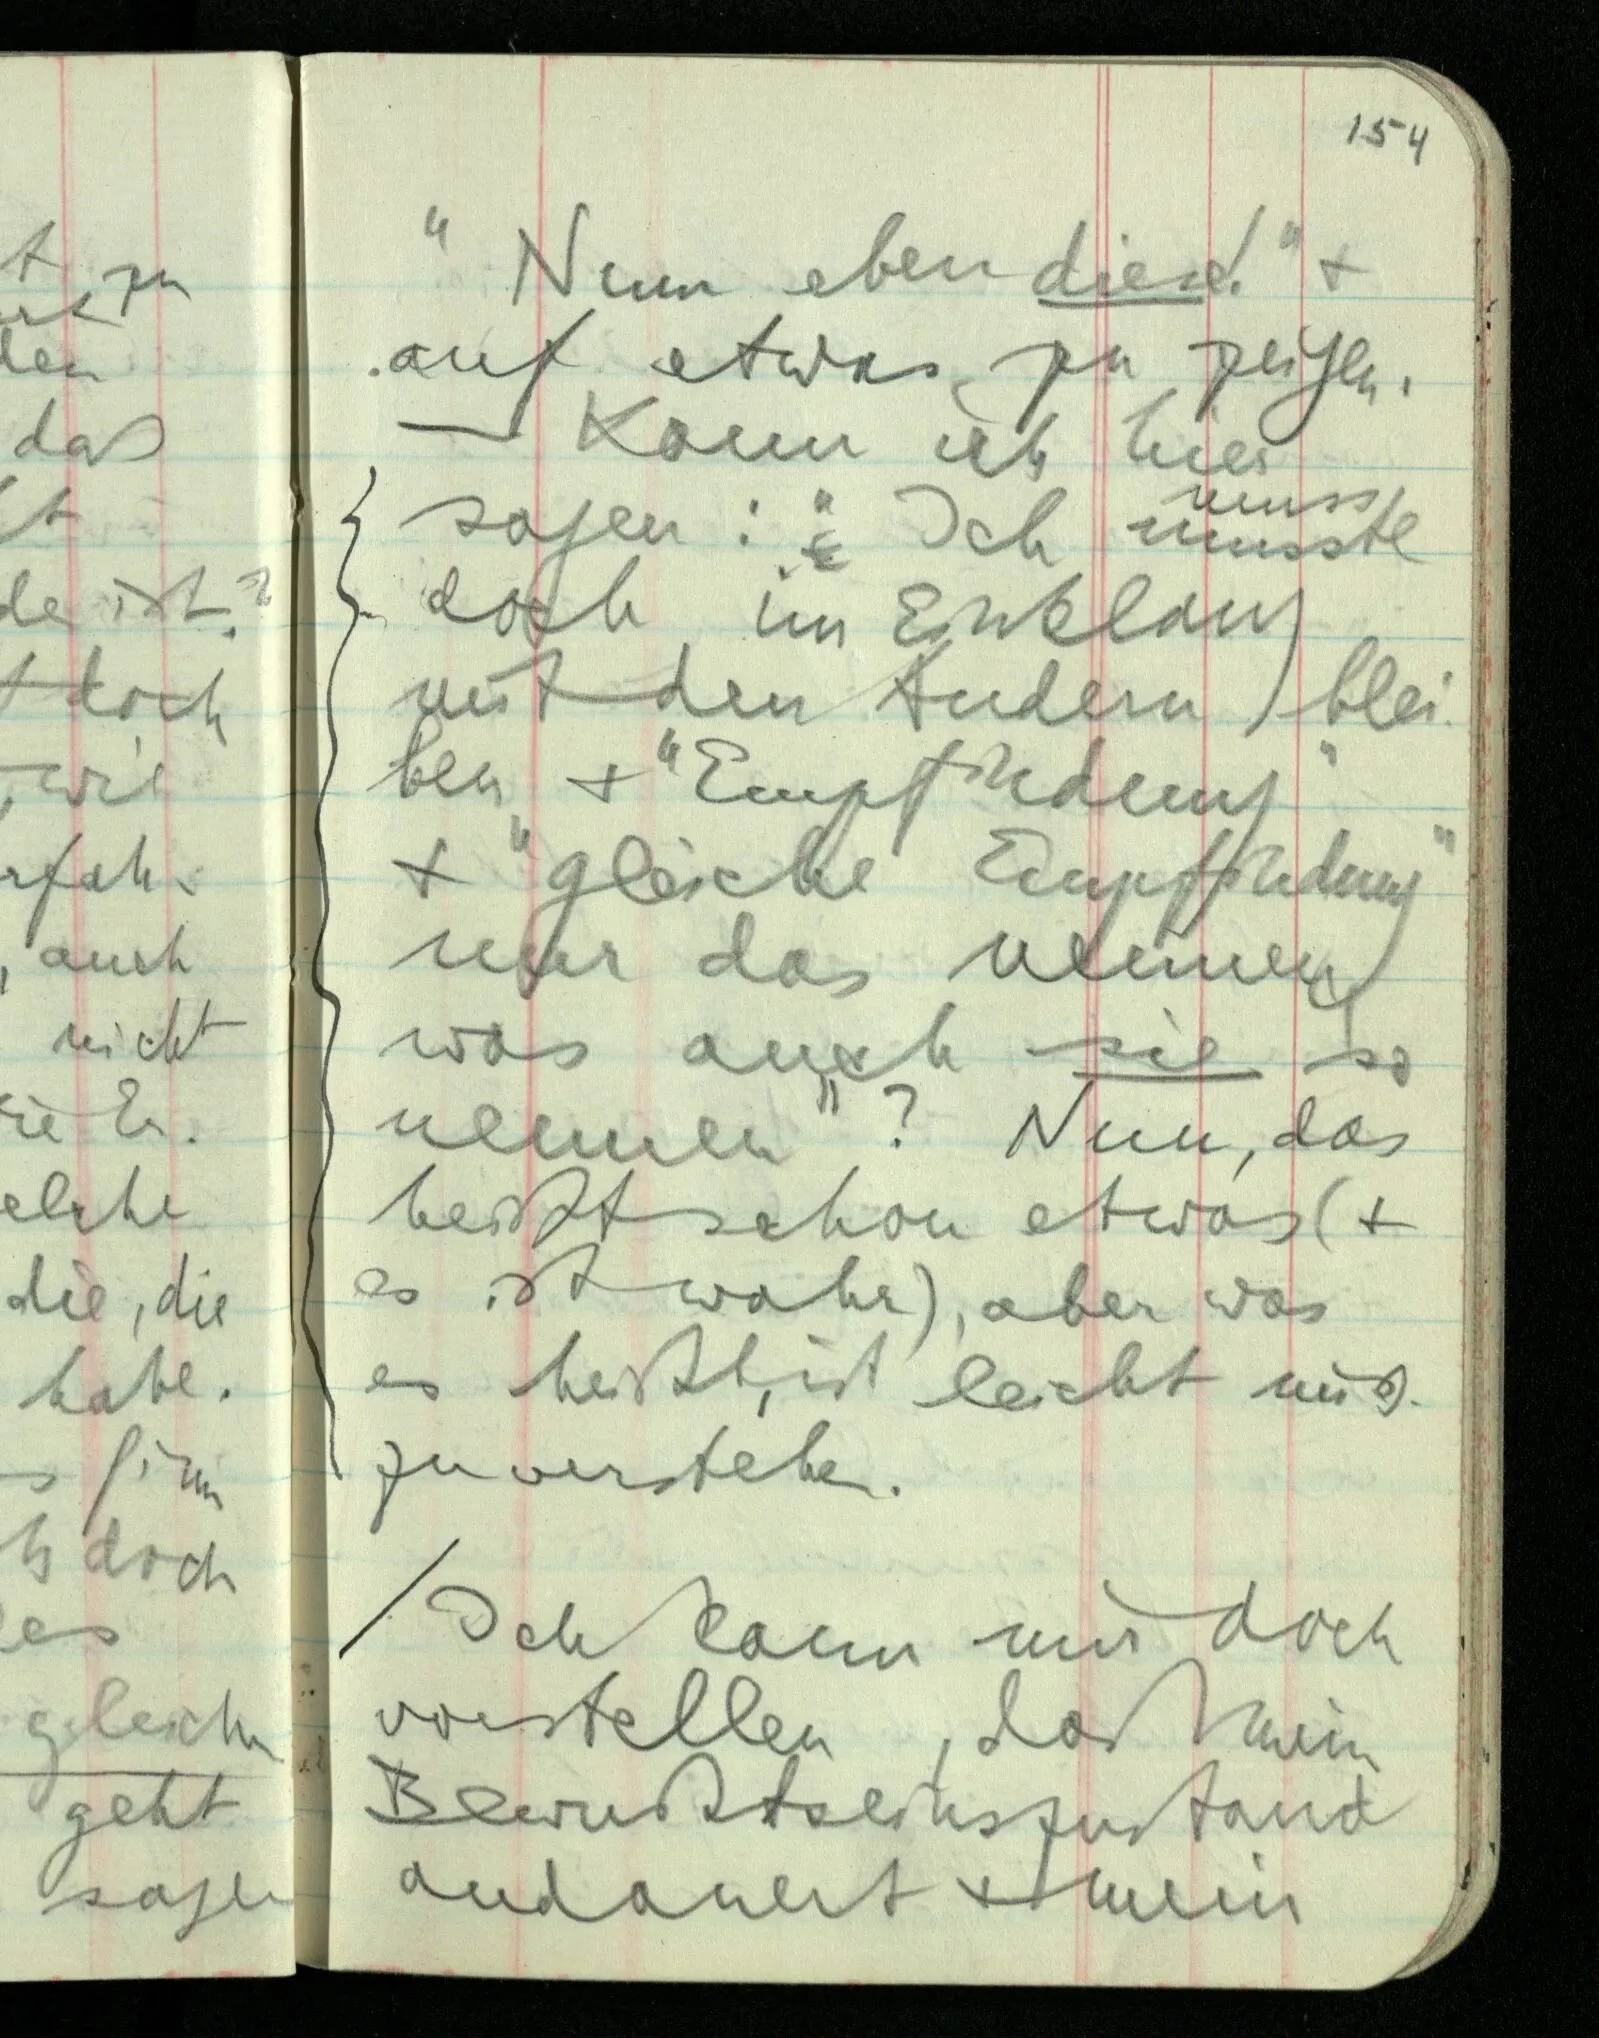 154
t zu
den
das
t
de ist?
t doch
, wie
erfah-
, auch
nicht
elche
die, die
habe.
doch
es
gleich
geht
sagen
" Nun eben diese!" +
auf etwas zu zeigen.
— Kann ich hier
sagen : " Ich muss
musste
doch im Einklang
mit den Andern blei-
ben + "Empfindung"
+ "gleiche Empfindung"
nur das nennen
was auch sie so
nennen" ? Nun, das
heißt schon etwas (+
es ist wahr), aber was
es heißt, ist leicht miß-
zuverstehen.
/ Ich kann mir doch
vorstellen, daß mein
Bewußtseinszustand
andauert + mein